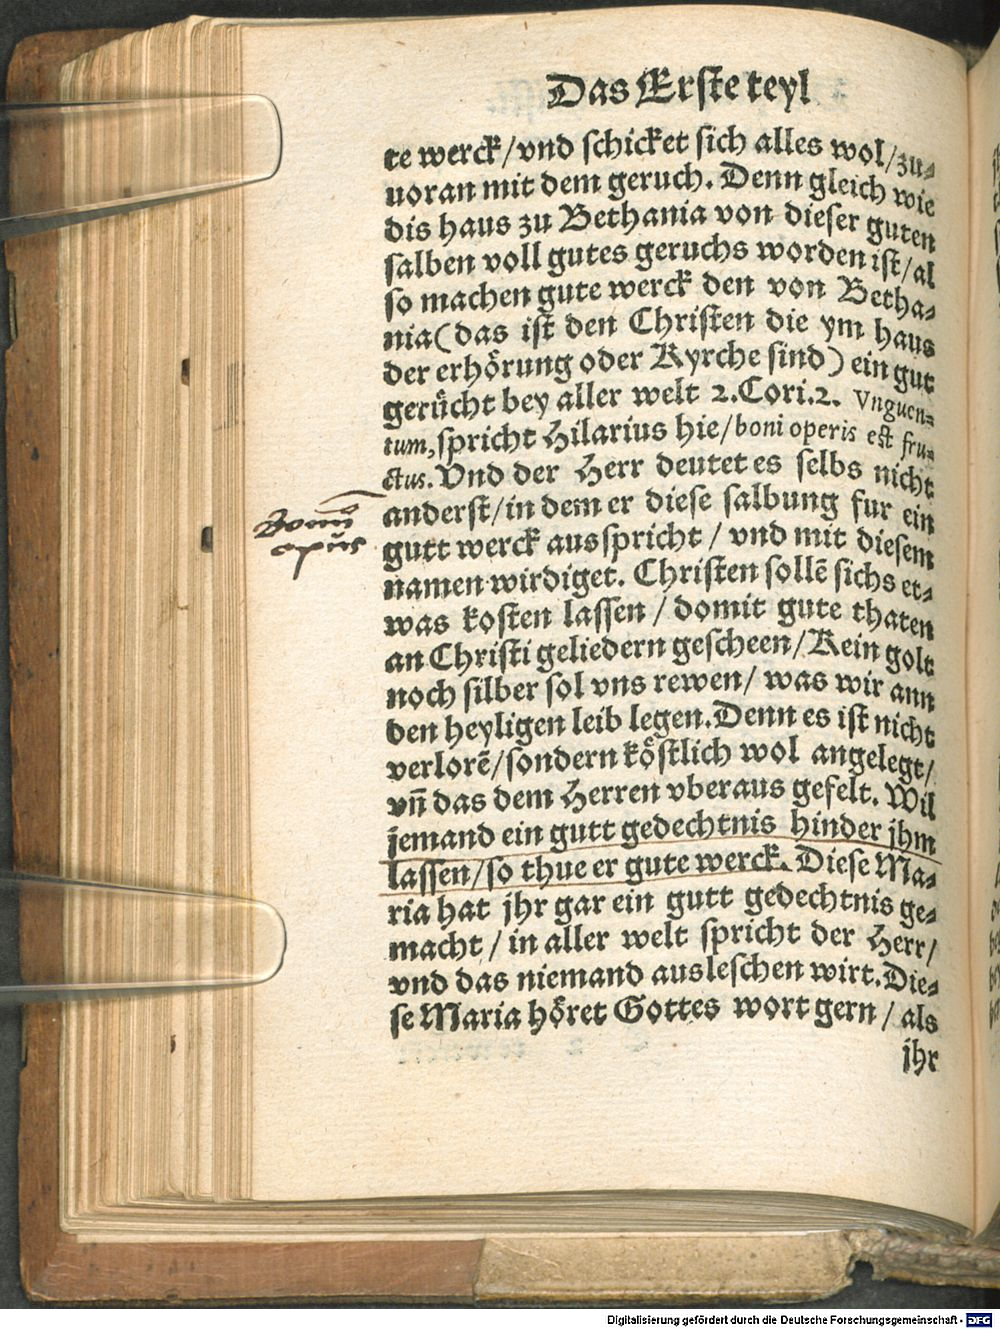 Das Erste teyl
te werck/vnd schicket sich alles wol/zu⸗
uoran mit dem geruch. Denn gleich wie
dis haus zu Bethania von dieser guten
salben voll gutes geruchs worden ist/al
so machen gute werck den von Betha⸗
nia(das ist den Christen die ym haus
der erhörung oder Kyrche sind) ein gut
gerücht bey aller welt 2.Cori.2. Vnguen⸗
tum,spricht Hilarius hie/boni operis est fru⸗
ctus. Vnd der Herr deutet es selbs nicht
anderst/in dem er diese salbung fur ein
gutt werck ausspricht / vnd mit diesem
namen wirdiget. Christen sollē sichs et⸗
was kosten lassen / domit gute thaten
an Christi geliedern gescheen/Kein golt
noch silber sol vns rewen/ was wir ann
den heyligen leib legen.Denn es ist nicht
verlorē/sondern köstlich wol angelegt/
vn̄ das dem Herren vberaus gefelt. Wil
jemand ein gutt gedechtnis hinder jhm
lassen/so thue er gute werck. Diese Ma⸗
ria hat jhr gar ein gutt gedechtnis ge⸗
macht / in aller welt spricht der Herr/
vnd das niemand ausleschen wirt.Die⸗
se Maria höret Gottes wort gern / als
jhr
opus
Digitalisierung gefördert durch die Deutsche Forschungsgemeinschaft - DFG